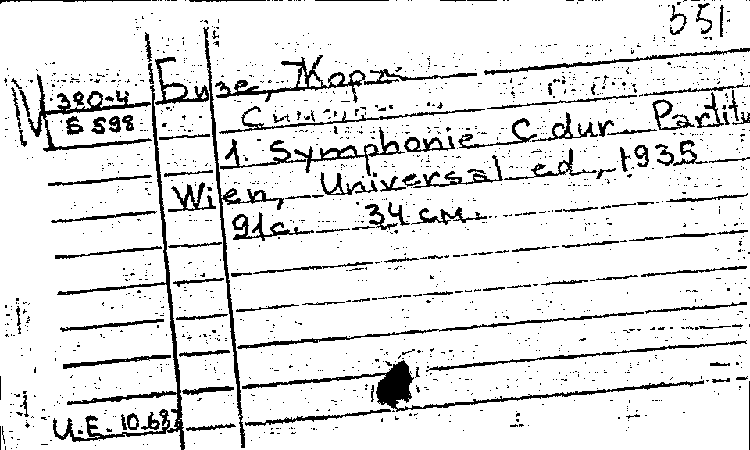 551
М 380-4 Бизе, Жорж
Б 598
1. Symphonie C dur. Partitu
Wien, Universal ed, 1935
91с. 34 см.
U.E. 10.687